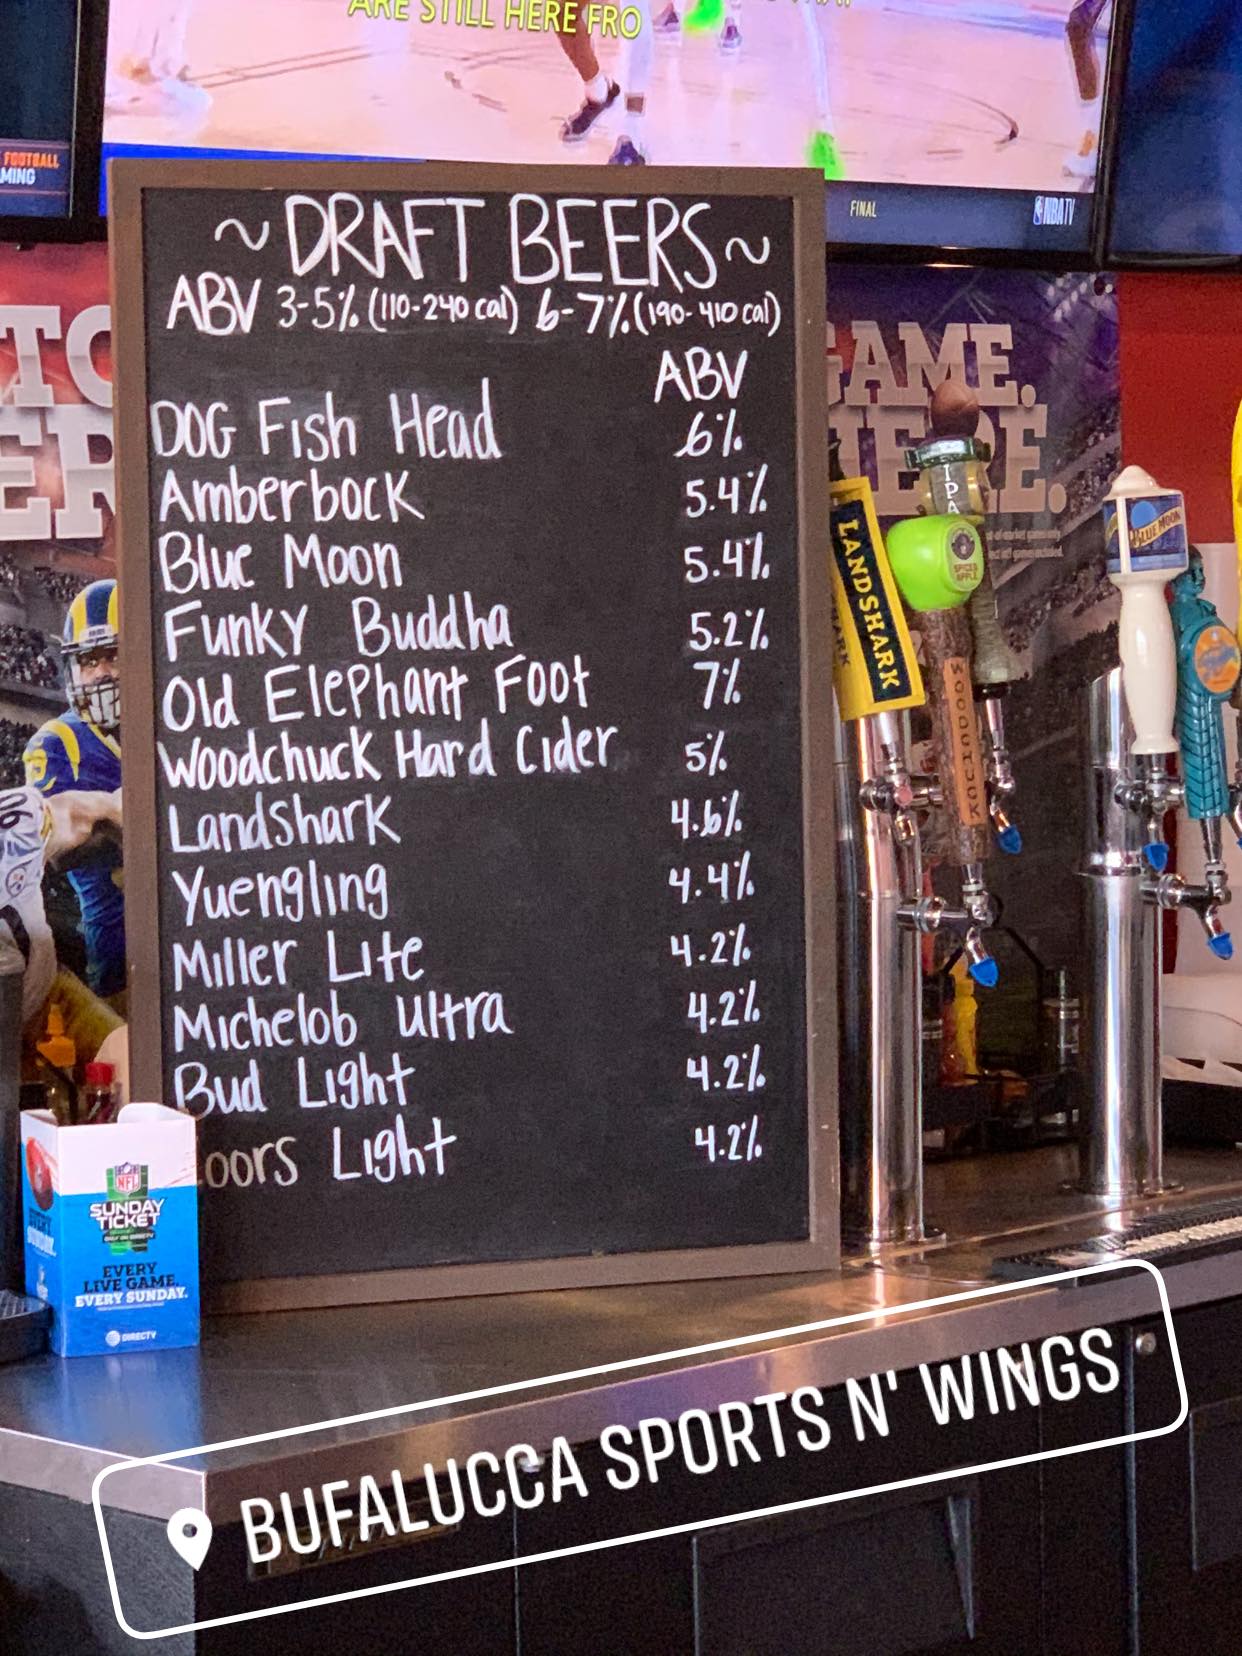 ARE STILL HERE FRO
FOOTBALL
MING
FINAL
NBA TV
~ DRAFT BEERS ~
ABV 3-5% (110-240 cal) 6-7% (190-410 cal)
ABV
DOG Fish Head 6%
Amberbock 5.4%
Blue Moon 5.4%
Funky Buddha 5.2%
Old Elephant Foot 7%
Woodchuck Hard Cider 5%
Landshark 4.6%
Yuengling 4.4%
Miller Lite 4.2%
Michelob Ultra 4.2%
Bud Light 4.2%
oors Light 4.2%
GAME.
HERE.
IPA
LANDSHARK
SPICED
APPLE
WOODCHUCK
BLUE MOON
NFL
SUNDAY
TICKET
EVERY
LIVE GAME.
EVERY SUNDAY.
DIRECTV
BUFALUCCA SPORTS N' WINGS